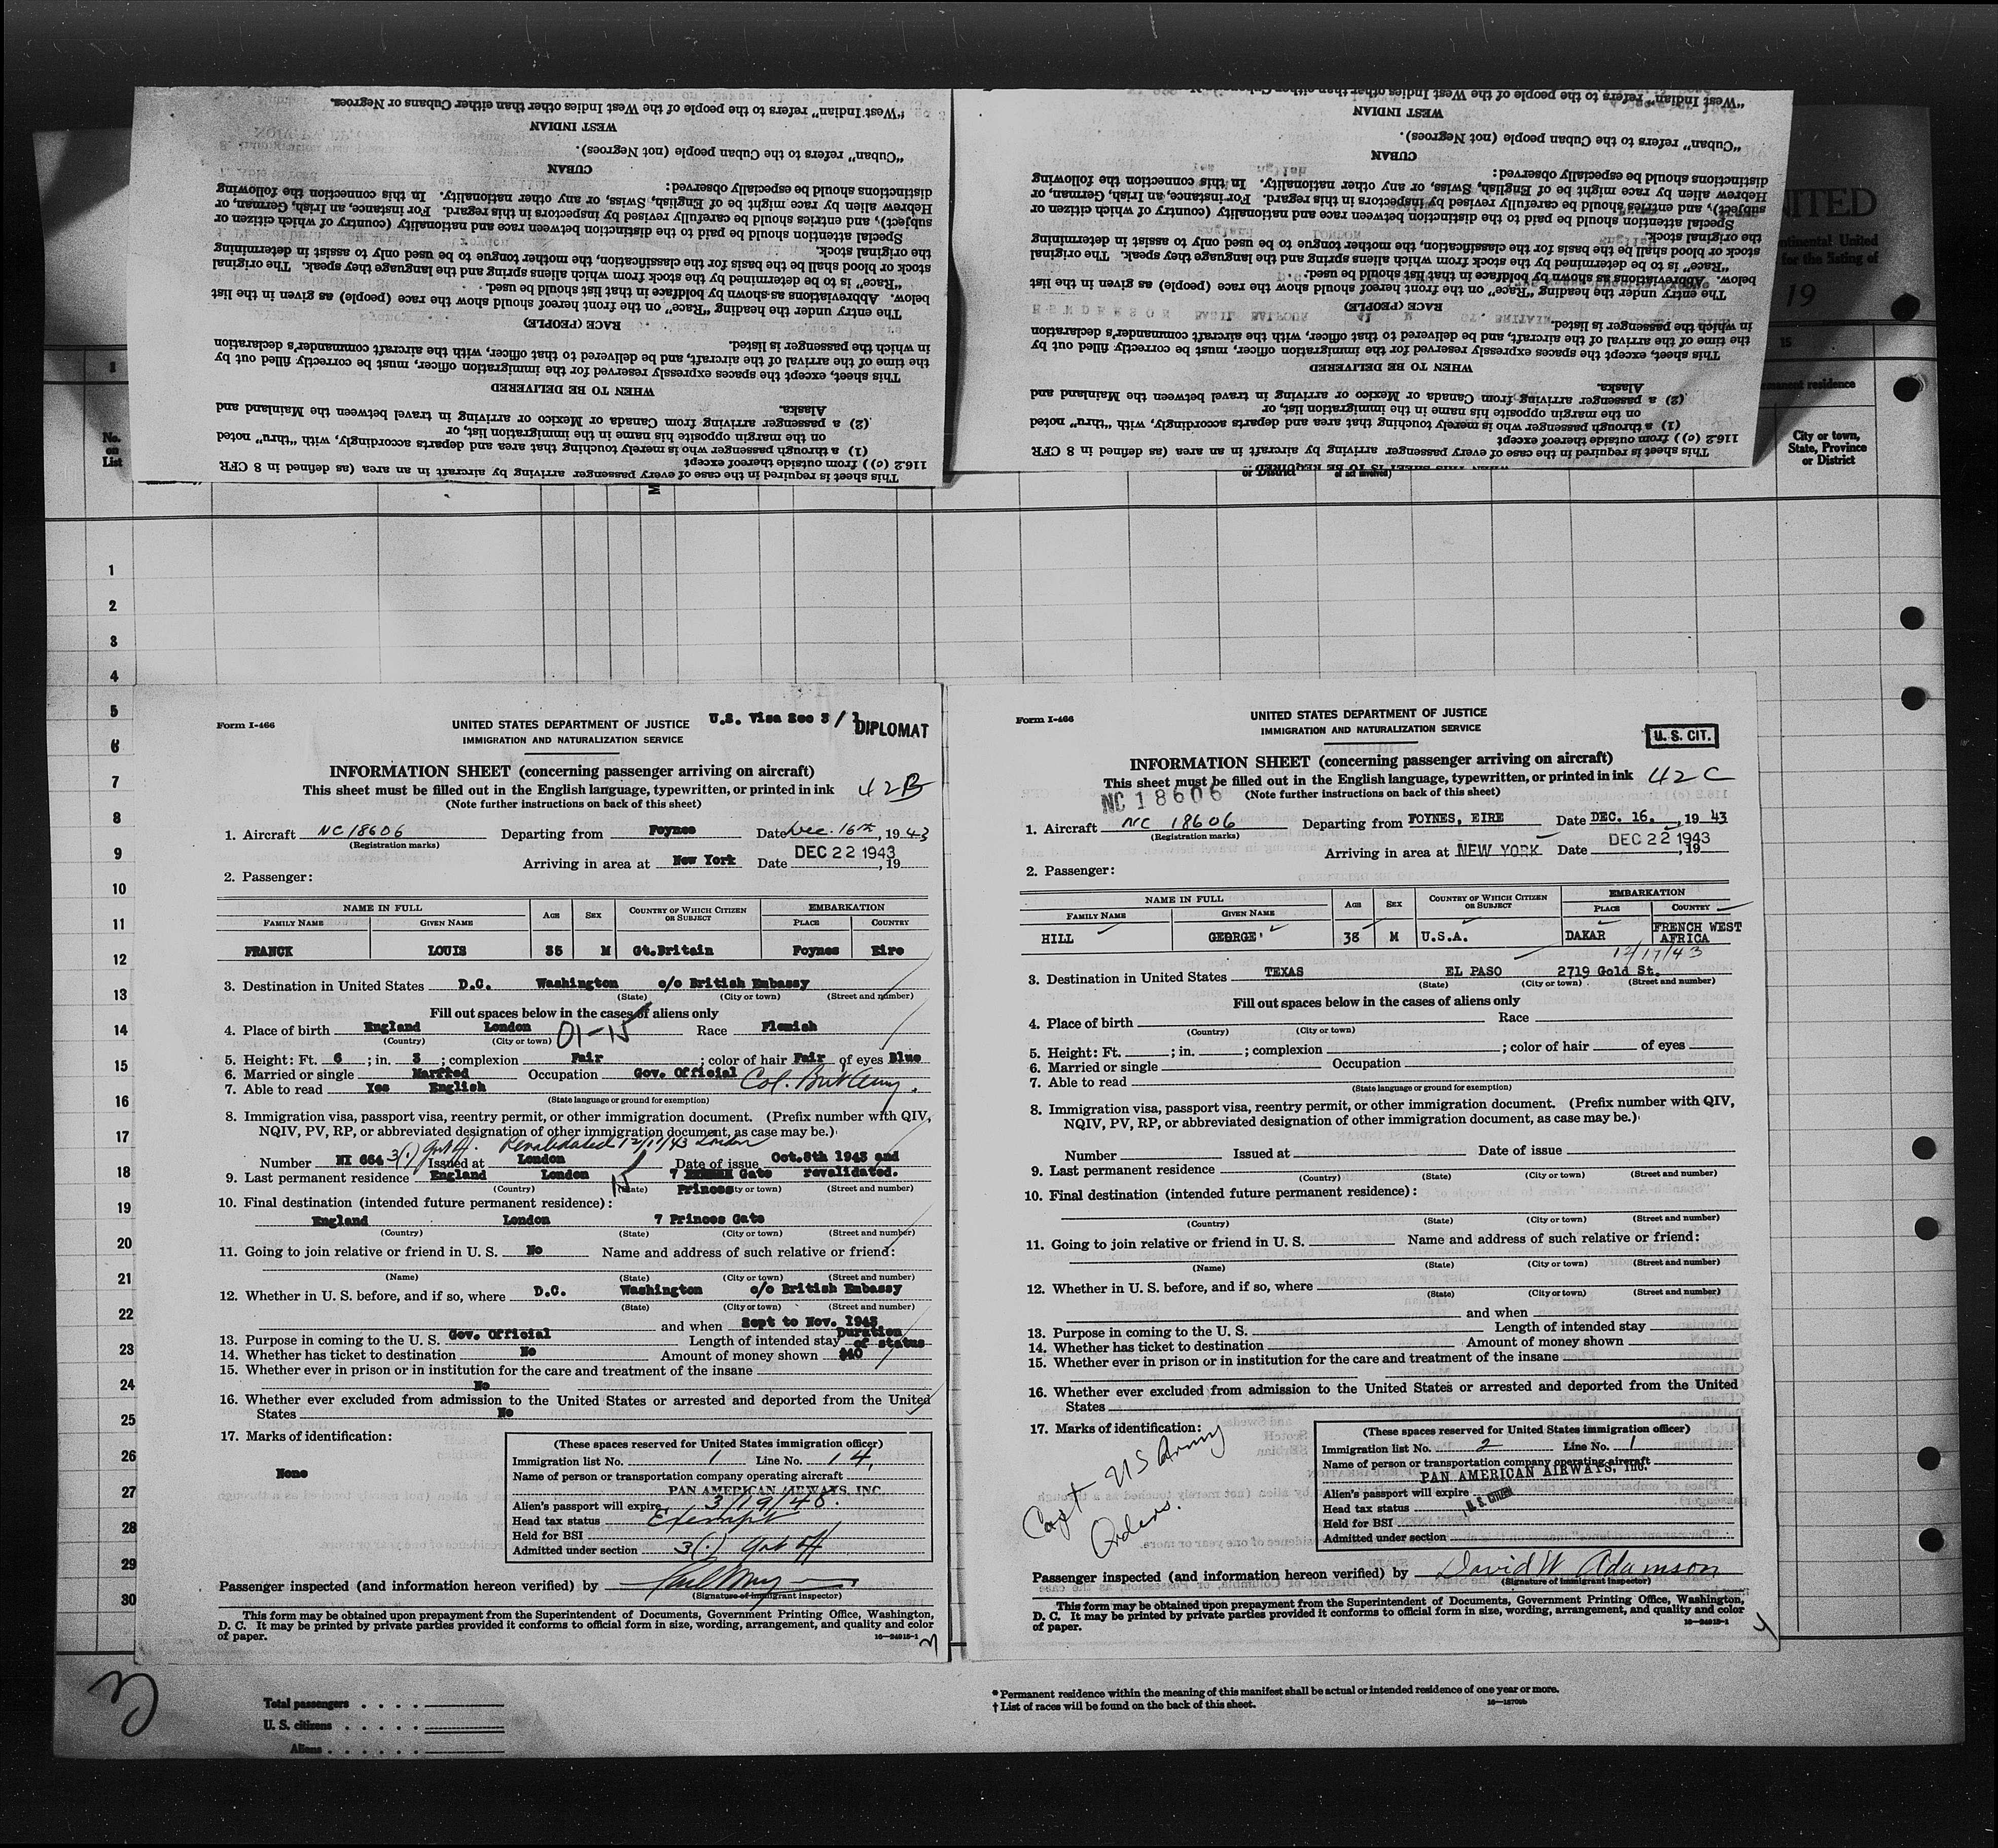 "West Indian" refers to the people of the West Indies other than either Cubans or Negroes.
WEST INDIAN
"Cuban" refers to the Cuban people (not Negroes).
CUBAN
distinctions should be especially observed:
Hebrew alien by race might be of English, Swiss, or any other nationality. In this connection the following
subject), and entries should be carefully revised by inspectors in this regard. For instance, an Irish, German, or
Special attention should be paid to the distinction between race and nationality (country of which citizen or
the original stock.
stock or blood shall be the basis for the classification, the mother tongue to be used only to assist in determining
"Race" is to be determined by the stock from which aliens spring and the language they speak. The original
below. Abbreviations as shown by boldface in that list should be used.
The entry under the heading "Race" on the front hereof should show the race (people) as given in the list
RACE (PEOPLE)
in which the passenger is listed.
the time of the arrival of the aircraft, and be delivered to that officer, with the aircraft commander's declaration
This sheet, except the spaces expressly reserved for the immigration officer, must be correctly filled out by
WHEN TO BE DELIVERED
Alaska.
(2) a passenger arriving from Canada or Mexico or arriving in travel between the Mainland and
on the margin opposite his name in the immigration list, or
(1) a through passenger who is merely touching that area and departs accordingly, with "thru" noted
116.2 (c) ) from outside thereof except
This sheet is required in the case of every passenger arriving by aircraft in an area (as defined in 8 CFR
"West Indian" refers to the people of the West Indies other than either Cubans or Negroes.
WEST INDIAN
"Cuban" refers to the Cuban people (not Negroes).
CUBAN
distinctions should be especially observed:
Hebrew alien by race might be of English, Swiss, or any other nationality. In this connection the following
subject), and entries should be carefully revised by inspectors in this regard. For instance, an Irish, German, or
Special attention should be paid to the distinction between race and nationality (country of which citizen or
the original stock.
stock or blood shall be the basis for the classification, the mother tongue to be used only to assist in determining
"Race" is to be determined by the stock from which aliens spring and the language they speak. The original
below. Abbreviations as shown by boldface in that list should be used.
The entry under the heading "Race" on the front hereof should show the race (people) as given in the list
RACE (PEOPLE)
in which the passenger is listed.
the time of the arrival of the aircraft, and be delivered to that officer, with the aircraft commander's declaration
This sheet, except the spaces expressly reserved for the immigration officer, must be correctly filled out by
WHEN TO BE DELIVERED
Alaska.
(2) a passenger arriving from Canada or Mexico or arriving in travel between the Mainland and
on the margin opposite his name in the immigration list, or
(1) a through passenger who is merely touching that area and departs accordingly, with "thru" noted
116.2 (c) ) from outside thereof except
This sheet is required in the case of every passenger arriving by aircraft in an area (as defined in 8 CFR
WHEN THIS SHEET IS TO BE REQUIRED
NITED
ontinental United
for the listing of
19
15
manent residence
City or town,
State, Province
or District
or District
No.
on
List
1
2
3
4
5
6
7
8
9
10
11
12
13
14
15
16
17
18
19
20
21
22
23
24
25
26
27
28
29
30
Form I-466
UNITED STATES DEPARTMENT OF JUSTICE
IMMIGRATION AND NATURALIZATION SERVICE
U.S. Visa Sec 3 / 1
DIPLOMAT
INFORMATION SHEET (concerning passenger arriving on aircraft)
This sheet must be filled out in the English language, typewritten, or printed in ink
42B
(Note further instructions on back of this sheet)
1. Aircraft NC18606 Departing from Foynes Date Dec. 16th, 1943
(Registration marks)
Arriving in area at New York Date DEC 22 1943, 19
2. Passenger:
NAME IN FULL AGE SEX COUNTRY OF WHICH CITIZEN OR SUBJECT EMBARKATION
FAMILY NAME GIVEN NAME PLACE COUNTRY
FRANCK LOUIS 35 M Gt.Britain Foynes Eire
3. Destination in United States D.C. Washington c/o British Embassy
(State) (City or town) (Street and number)
Fill out spaces below in the cases of aliens only
4. Place of birth England London 01-15 Race Flemish
(Country) (City or town)
5. Height: Ft. 6; in. 3; complexion Fair; color of hair Fair of eyes Blue
6. Married or single Married Occupation Gov. Official Col. Brit Army.
7. Able to read Yes English
(State language or ground for exemption)
8. Immigration visa, passport visa, reentry permit, or other immigration document. (Prefix number with QIV,
NQIV, PV, RP, or abbreviated designation of other immigration document, as case may be.)
Revalidated 12/11/43 London
Number NI 664 3(1) Gov Of. Issued at London Date of issue Oct.8th 1943 and
revalidated.
9. Last permanent residence England London 15 7 Gate
Princes
(Country) (State) (City or town) (Street and number)
10. Final destination (intended future permanent residence):
England London 7 Princes Gate
(Country) (State) (City or town) (Street and number)
11. Going to join relative or friend in U. S. No Name and address of such relative or friend:
(Name) (State) (City or town) (Street and number)
12. Whether in U. S. before, and if so, where D.C. Washington c/o British Embassy
(State) (City or town) (Street and number)
and when Sept to Nov. 1943
13. Purpose in coming to the U. S. Gov. Official Length of intended stay Duration of status
14. Whether has ticket to destination No Amount of money shown $40
15. Whether ever in prison or in institution for the care and treatment of the insane
No
16. Whether ever excluded from admission to the United States or arrested and deported from the United
States No
17. Marks of identification:
None
(These spaces reserved for United States immigration officer)
Immigration list No. 1 Line No. 14.
Name of person or transportation company operating aircraft
PAN AMERICAN AIRWAYS, INC.
Alien's passport will expire 3/19/48.
Head tax status Exempt
Held for BSI
Admitted under section 3(1) Gov off
Passenger inspected (and information hereon verified) by
(Signature of immigrant inspector)
This form may be obtained upon prepayment from the Superintendent of Documents, Government Printing Office, Washington,
D. C. It may be printed by private parties provided it conforms to official form in size, wording, arrangement, and quality and color
of paper.
16—24915-1
3
Form I-466
UNITED STATES DEPARTMENT OF JUSTICE
IMMIGRATION AND NATURALIZATION SERVICE
U. S. CIT.
INFORMATION SHEET (concerning passenger arriving on aircraft)
This sheet must be filled out in the English language, typewritten, or printed in ink
42C
NC18606
(Note further instructions on back of this sheet)
1. Aircraft NC 18606 Departing from FOYNES, EIRE Date DEC. 16., 1943
(Registration marks)
Arriving in area at NEW YORK Date DEC 22 1943, 19
2. Passenger:
NAME IN FULL AGE SEX COUNTRY OF WHICH CITIZEN OR SUBJECT EMBARKATION
FAMILY NAME GIVEN NAME PLACE COUNTRY
HILL GEORGE 38 M U.S.A. DAKAR FRENCH WEST AFRICA
12/17/43
3. Destination in United States TEXAS EL PASO 2719 Gold St.
(State) (City or town) (Street and number)
Fill out spaces below in the cases of aliens only
4. Place of birth Race
(Country) (City or town)
5. Height: Ft. ; in. ; complexion ; color of hair of eyes
6. Married or single Occupation
7. Able to read
(State language or ground for exemption)
8. Immigration visa, passport visa, reentry permit, or other immigration document. (Prefix number with QIV,
NQIV, PV, RP, or abbreviated designation of other immigration document, as case may be.)
Number Issued at Date of issue
9. Last permanent residence
(Country) (State) (City or town) (Street and number)
10. Final destination (intended future permanent residence):
(Country) (State) (City or town) (Street and number)
11. Going to join relative or friend in U. S. Name and address of such relative or friend:
(Name) (State) (City or town) (Street and number)
12. Whether in U. S. before, and if so, where
(State) (City or town) (Street and number)
and when
13. Purpose in coming to the U. S. Length of intended stay
14. Whether has ticket to destination Amount of money shown
15. Whether ever in prison or in institution for the care and treatment of the insane
16. Whether ever excluded from admission to the United States or arrested and deported from the United
States
17. Marks of identification:
Capt US Army
Orders.
(These spaces reserved for United States immigration officer)
Immigration list No. 2 Line No. 1
Name of person or transportation company operating aircraft
PAN AMERICAN AIRWAYS, INC.
Alien's passport will expire
Head tax status U. S. CITIZEN
Held for BSI
Admitted under section
Passenger inspected (and information hereon verified) by David W Adamson
(Signature of immigrant inspector)
This form may be obtained upon prepayment from the Superintendent of Documents, Government Printing Office, Washington,
D. C. It may be printed by private parties provided it conforms to official form in size, wording, arrangement, and quality and color
of paper.
16—24915-1
4
Total passengers
U. S. citizens
Aliens
* Permanent residence within the meaning of this manifest shall be actual or intended residence of one year or more.
† List of races will be found on the back of this sheet.
16—18709b